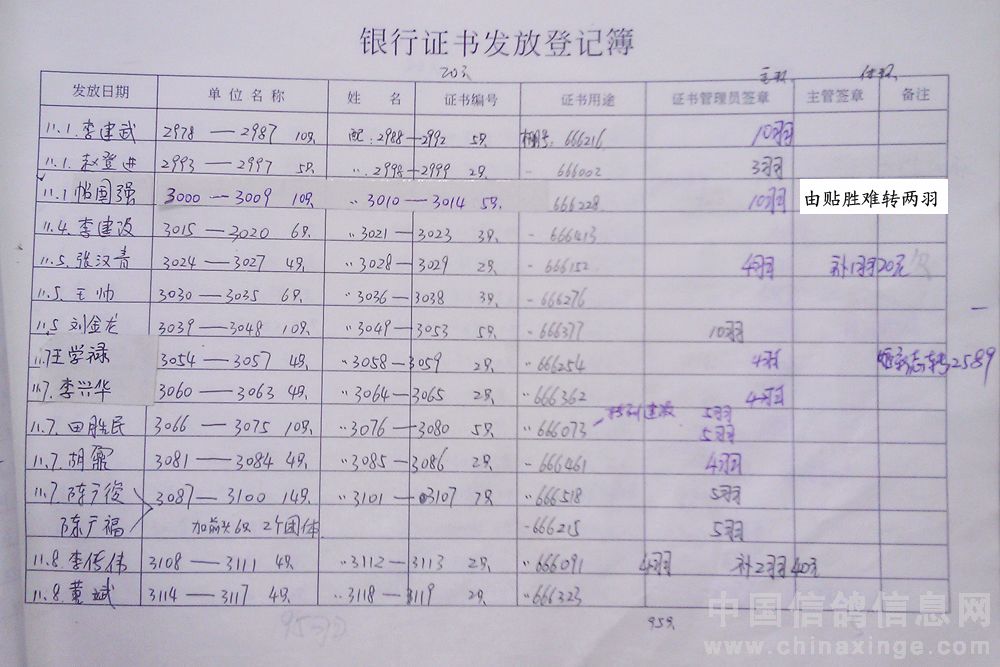 银行证书发放登记簿
发放日期 单位名称 姓 名 证书编号 证书用途 证书管理员签章 主管签章 备注
11.1. 李建武 2978 — 2987 10只 配:2988 — 2992 5只 棚号: 666216 10羽
11.1. 赵登进 2993 — 2997 5只 〃 2998 — 2999 2只 - 666002 3羽
11.1 3000 — 3009 10只 〃 3010 — 3014 5只 666228 10羽 由贴胜难转两羽
11.4. 李建设 3015 — 3020 6只 〃 3021 — 3023 3只 - 666413
11.5. 张汉青 3024 — 3027 4只 〃 3028 — 3029 2只 - 666152 4羽 补1羽20元
11.5. 王帅 3030 — 3035 6只 〃 3036 — 3038 3只 - 666276
11.5 刘金龙 3039 — 3048 10只 〃 3049 — 3053 5只 - 666377 10羽
11.7 汪学禄 3054 — 3057 4只 〃 3058 — 3059 2只 〃 666254 4羽 2589
11.7. 李兴华 3060 — 3063 4只 〃 3064 — 3065 2只 〃 666362 4羽
11.7. 田胜民 3066 — 3075 10只 〃 3076 — 3080 5只 〃 666073 5羽
5羽
11.7. 胡鼐 3081 — 3084 4只 〃 3085 — 3086 2只 - 666461 4羽
11.7. 陈广俊 3087 — 3100 14只 〃 3101 — 3107 7只 〃 666518 5羽
陈广福 加前头6只 2个团体 - 666215 5羽
11.8. 李传伟 3108 — 3111 4只 〃 3112 — 3113 2只 〃 666091 4羽 补2羽40元
11.8. 董斌 3114 — 3117 4只 〃 3118 — 3119 2只 〃 666323
95只
中国信鸽信息网
www.chinaxinge.com